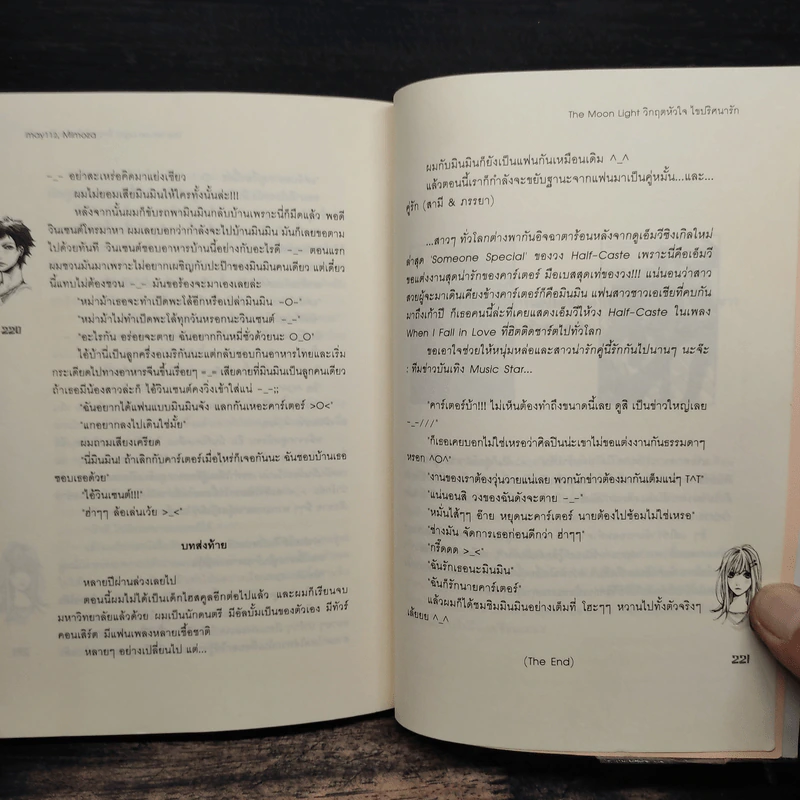 may112, Mimosa
-_- อย่าสะเหร่อคิดมาแย่งเชียว
ผมไม่ยอมเสียมินมินให้ใครทั้งนั้นล่ะ!!!
หลังจากนั้นผมก็ขับรถพามินมินกลับบ้านเพราะนี่ก็มืดแล้ว พอดี
วินเซนต์โทรมาหา ผมเลยบอกว่ากำลังจะไปบ้านมินมิน มันก็เลยขอตาม
ไปด้วยทันที วินเซนต์ชอบอาหารบ้านนี้อย่างกับอะไรดี -_- ตอนแรก
ผมชวนมันมาเพราะไม่อยากเผชิญกับปะป๊าของมินมินคนเดียว แต่เดี๋ยว
นี้แทบไม่ต้องชวน -_- มันขอร้องจะมาเองเลยล่ะ
"หม่าม้าเธอจะทำเป็ดพะโล้อีกหรือเปล่ามินมิน -O-"
"หม่าม้าไม่ทำเป็ดพะโล้ทุกวันหรอกนะวินเซนต์ -_-"
"อะไรกัน อร่อยจะตาย ฉันอยากกินหมี่ซั่วด้วยนะ O_O"
ไอ้บ้านี่เป็นลูกครึ่งอเมริกันนะแต่กลับชอบกินอาหารไทยและเริ่ม
กระเดียดไปทางอาหารจีนขึ้นเรื่อยๆ =_= เสียดายที่มินมินเป็นลูกคนเดียว
ถ้าเธอมีน้องสาวล่ะก็ ไอ้วินเซนต์คงวิ่งเข้าใส่แน่ -_-;;
"ฉันอยากได้แฟนแบบมินมินจัง แลกกันเหอะคาร์เตอร์ >O<"
"แกอยากลงไปเดินใช่มั้ย"
ผมถามเสียงเครียด
"นี่มินมิน! ถ้าเลิกกับคาร์เตอร์เมื่อไหร่ก็เจอกันนะ ฉันชอบบ้านเธอ
ชอบเธอด้วย"
"ไอ้วินเซนต์!!!"
"ฮ่าๆๆ ล้อเล่นเว้ย >_<"
บทส่งท้าย
หลายปีผ่านล่วงเลยไป
ตอนนี้ผมไม่ได้เป็นเด็กไฮสคูลอีกต่อไปแล้ว และผมก็เรียนจบ
มหาวิทยาลัยแล้วด้วย ผมเป็นนักดนตรี มีอัลบั้มเป็นของตัวเอง มีทัวร์
คอนเสิร์ต มีแฟนเพลงหลายเชื้อชาติ
หลายๆ อย่างเปลี่ยนไป แต่...
220
The Moon Light วิกฤตหัวใจ ไขปริศนารัก
ผมกับมินมินก็ยังเป็นแฟนกันเหมือนเดิม ^_^
แล้วตอนนี้เราก็กำลังจะขยับฐานะจากแฟนมาเป็นคู่หมั้น...และ...
คู่รัก (สามี & ภรรยา)
...สาวๆ ทั่วโลกต่างพากันอิจฉาตาร้อนหลังจากดูเอ็มวีซิงเกิลใหม่
ล่าสุด 'Someone Special' ของวง Half-Caste เพราะนี่คือเอ็มวี
ขอแต่งงานสุดน่ารักของคาร์เตอร์ มือเบสสุดเท่ของวง!!! แน่นอนว่าสาว
สวยผู้จะมาเดินเคียงข้างคาร์เตอร์ก็คือมินมิน แฟนสาวชาวเอเชียที่คบกัน
มาถึงเก้าปี ก็เธอคนนี้ล่ะที่เคยแสดงเอ็มวีให้วง Half-Caste ในเพลง
When I Fall in Love ที่ฮิตติดชาร์ตไปทั่วโลก
ขอเอาใจช่วยให้หนุ่มหล่อและสาวน่ารักคู่นี้รักกันไปนานๆ นะจ๊ะ
: ทีมข่าวบันเทิง Music Star...
"คาร์เตอร์บ้า!!! ไม่เห็นต้องทำถึงขนาดนี้เลย ดูสิ เป็นข่าวใหญ่เลย
-_-///"
"ก็เธอเคยบอกไม่ใช่เหรอว่าศิลปินน่ะเขาไม่ขอแต่งงานกันธรรมดาๆ
หรอก ^O^"
"งานของเราต้องวุ่นวายแน่เลย พวกนักข่าวต้องมากันเต็มแน่ๆ T^T"
"แน่นอนสิ วงของฉันดังจะตาย -_-"
"หมั่นไส้ๆๆ อ๊าย หยุดนะคาร์เตอร์ นายต้องไปซ้อมไม่ใช่เหรอ"
"ช่างมัน จัดการเธอก่อนดีกว่า ฮ่าๆๆ"
"กรี๊ดดด >_<"
"ฉันรักเธอนะมินมิน"
"ฉันก็รักนายคาร์เตอร์"
แล้วผมก็ได้ชมชิมมินมินอย่างเต็มที่ โฮะๆๆ หวานไปทั้งตัวจริงๆ
เล้ยยย ^_^
(The End)
221